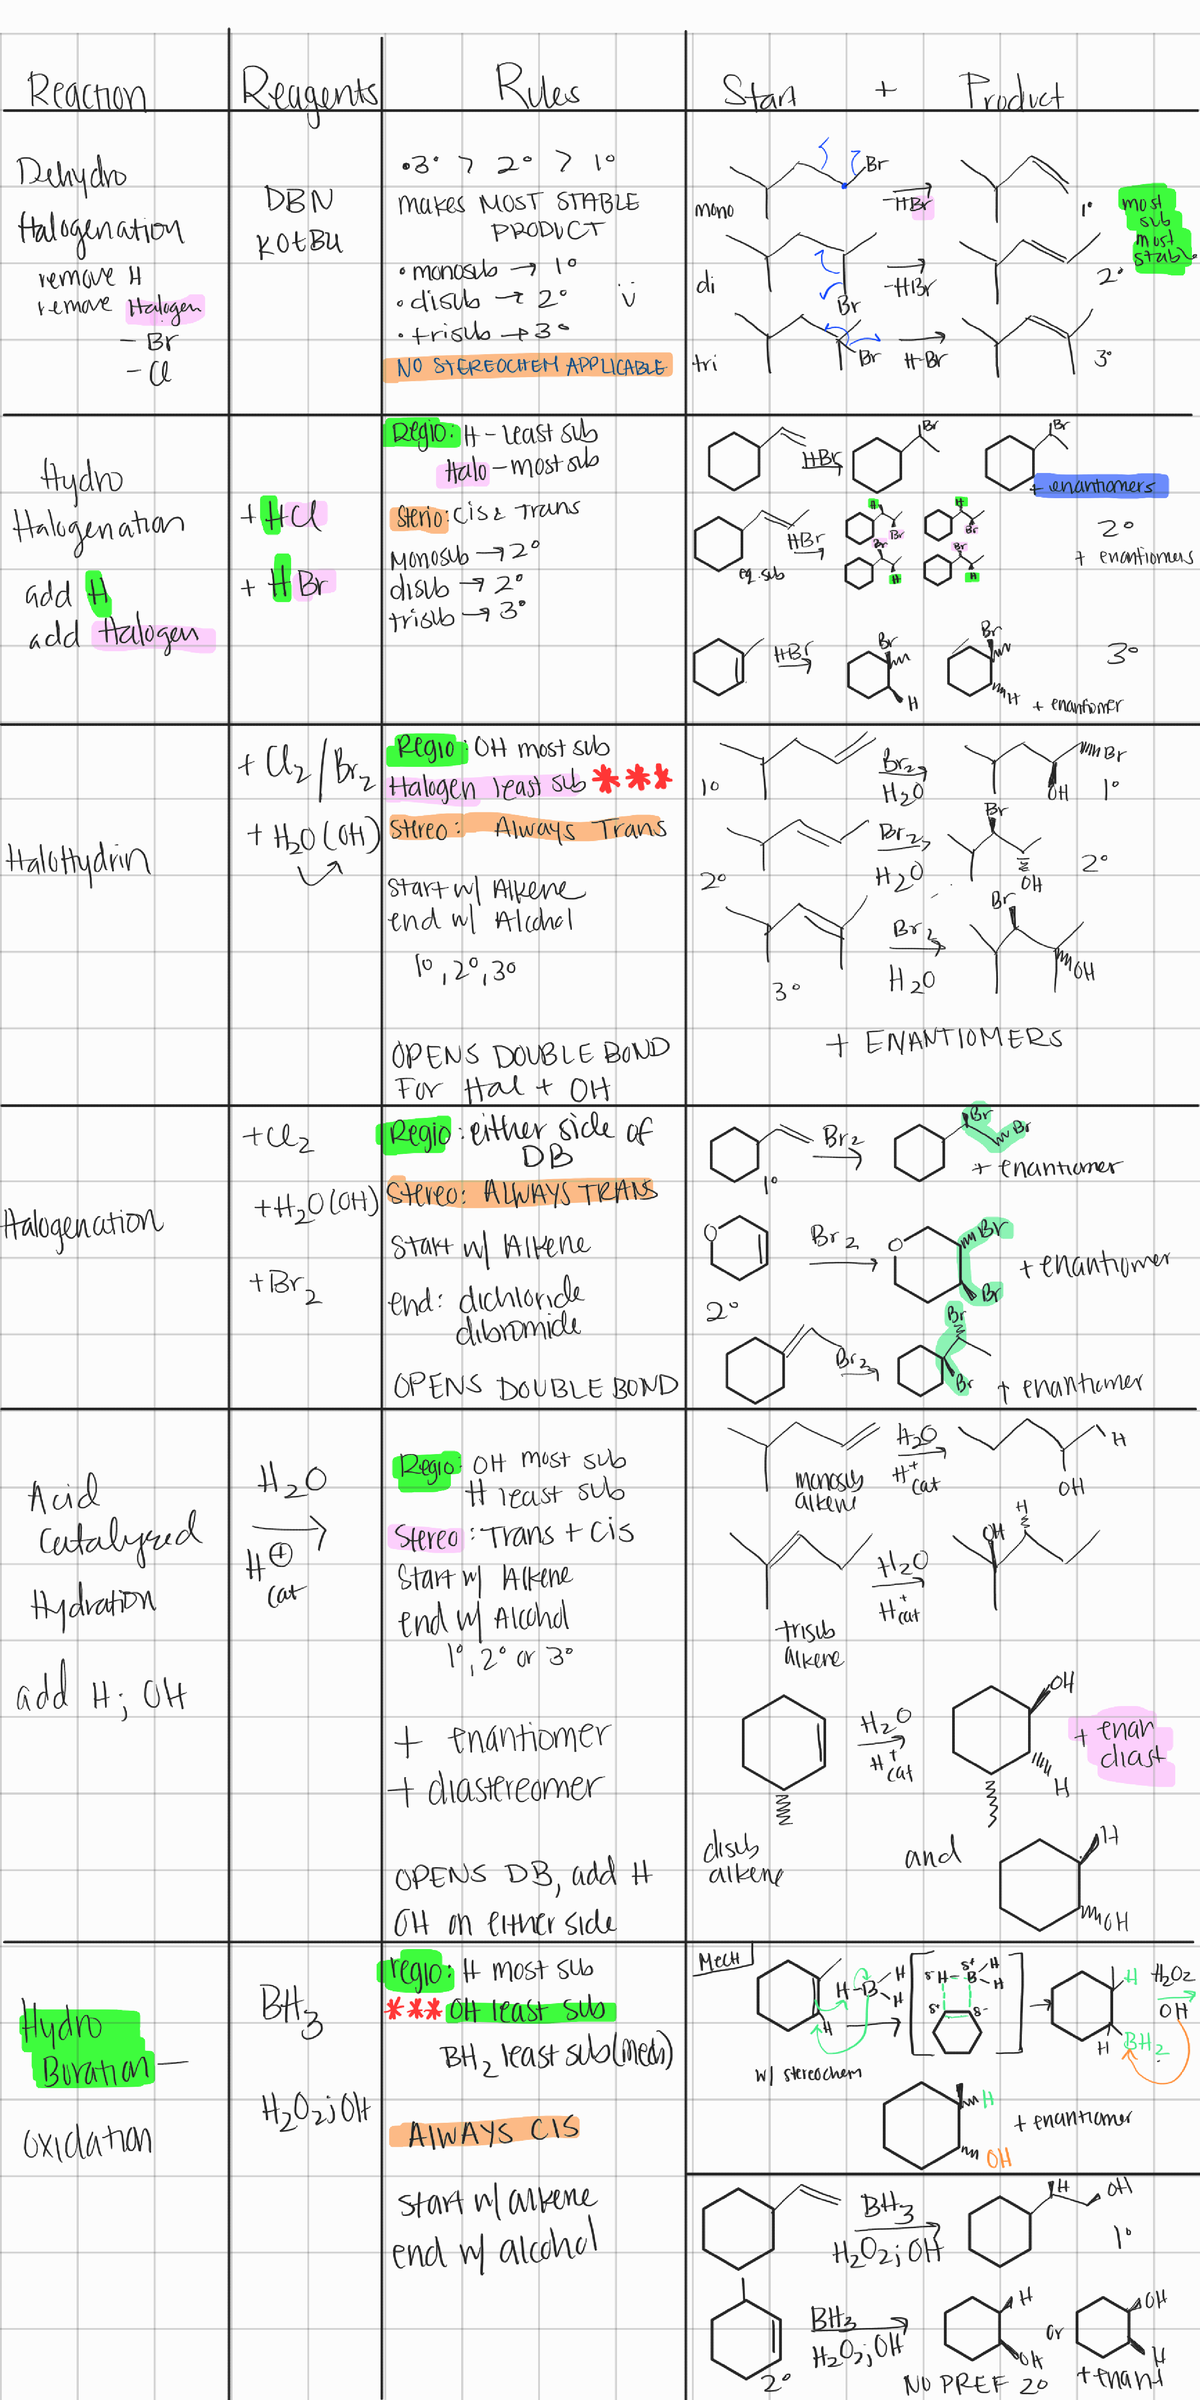 Reaction
Reagents
Rules
Start + Product
Dehydro
Halogenation
remove H
remove Halogen
- Br
- Cl
DBN
KOtBu
•3° > 2° > 1°
makes MOST STABLE
PRODUCT
• monosub → 1°
• disub → 2°
• trisub → 3°
NO STEREOCHEM APPLICABLE
Br
mono
-HBr
1°
most
sub
most
stable
di
Br
-HBr
2°
tri
Br
H-Br
3°
Hydro
Halogenation
add H
add Halogen
+ HCl
+ HBr
Regio: H - least sub
Halo - most sub
Sterio: Cis & trans
Monosub → 2°
disub → 2°
trisub → 3°
HBr
Br
Br
+ enantiomers
HBr
eq. sub
H
Br
H
Br
Br
H
Br
H
2°
+ enantiomers
HBr
Br
H
Br
H
3°
+ enantiomer
HaloHydrin
+ Cl2/Br2
+ H2O (OH)
Regio: OH most sub
Halogen least sub ***
Stereo: Always Trans
Start w/ Alkene
end w/ Alcohol
1°, 2°, 3°
OPENS DOUBLE BOND
For Hal + OH
1°
Br2
H2O
Br
OH
1°
2°
Br2
H2O
Br
OH
2°
3°
Br2
H2O
Br
OH
+ ENANTIOMERS
Halogenation
+Cl2
+H2O(OH)
+Br2
Regio: either side of
DB
Stereo: ALWAYS TRANS
Start w/ Alkene
end: dichloride
dibromide
OPENS DOUBLE BOND
1°
Br2
Br
Br
+ enantiomer
O
Br2
O
Br
Br
+ enantiomer
2°
Br2
Br
Br
+ enantiomer
Acid
Catalyzed
Hydration
add H; OH
H2O
H⊕
cat
Regio: OH most sub
H least sub
Stereo: Trans + Cis
Start w/ Alkene
end w/ Alcohol
1°, 2° or 3°
+ enantiomer
+ diastereomer
OPENS DB, add H
OH on either side
monosub
alkene
H2O
H+
cat
H
OH
trisub
alkene
H2O
H+
cat
OH
H
disub
alkene
H2O
H+
cat
OH
H
+ enan
diast
and
H
OH
Hydro
Buration —
oxidation
BH3
H2O2; OH
regio: H most sub
*** OH least sub
BH2 least sub (mech)
ALWAYS CIS
start w/ alkene
end w/ alcohol
MecH
H
H-B
H
H
δ-H
δ+
B
H
H
δ+
δ-
H
H
BH2
H2O2
OH
w/ stereochem
H
OH
+ enantiomer
BH3
H2O2; OH
H
OH
1°
BH3
H2O2; OH
2°
H
OH
or
OH
H
NO PREF 2°
+ enant